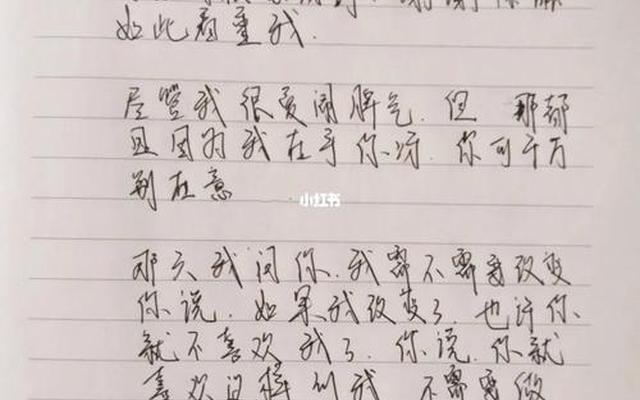 如此看重我.
尽管我很爱闹脾气.但 那都
是因为我在乎你呀.你可千万
别在意
小红书
那天我问你.我需不需要改变
你说.如果我改变了.也许你
就不喜欢我了.你说.你就
喜欢这样的我.不需要做